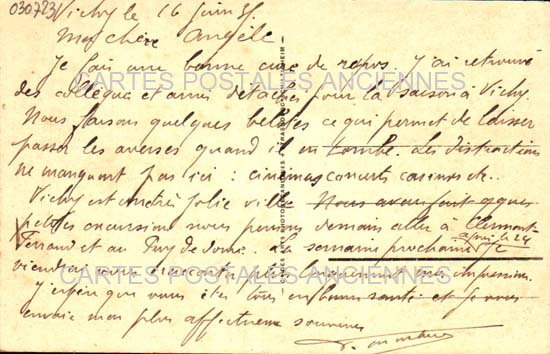 030723
Vichy le 16 Juin 35
Ma chère Angèle
Je fais une bonne cure de repos. J'ai retrouvé
des collègues et amis détachés pour la saison à Vichy.
Nous faisons quelques belotes ce qui permet de laisser
passer les averses quand il en tombe. Les distractions
ne manquent pas ici : cinémas concerts casinos etc..
Vichy est une très jolie ville. Nous avons fait qques
petites excursions nous pensons demain aller à Clermont-
Ferrand et au Puy de dome. La semaine prochaine Je
viendrai vous raconter plus longuement mes impressions.
J'espère que vous êtes tous en bonne santé et je vous
envoie mon plus affectueux souvenir
CARTES POSTALES ANCIENNES
CARTES POSTALES ANCIENNES